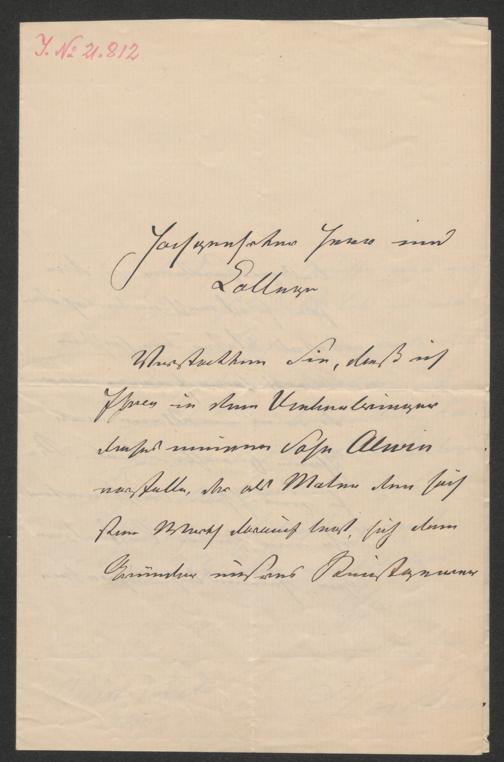 J. № 21.812
Hochgeehrter Herr und
College
Verstatten Sie, daß ich
Ihnen in dem Ueberbringer
dieses meinen Sohn Alwin
vorstelle, der als Maler den höch
sten Werth darauf legt, sich dem
Gründer unseres Kunstgewer